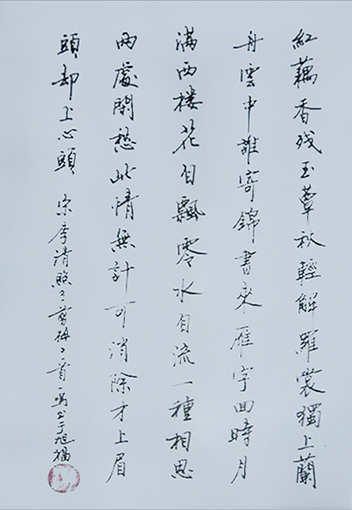 紅藕香残玉簟秋輕解羅裳獨上蘭
舟雲中誰寄錦書來雁字回時月
满西楼花自飄零水自流一種相思
两處閑愁此情無計可消除才上眉
頭却上心頭 宋李清照 剪梅 一首